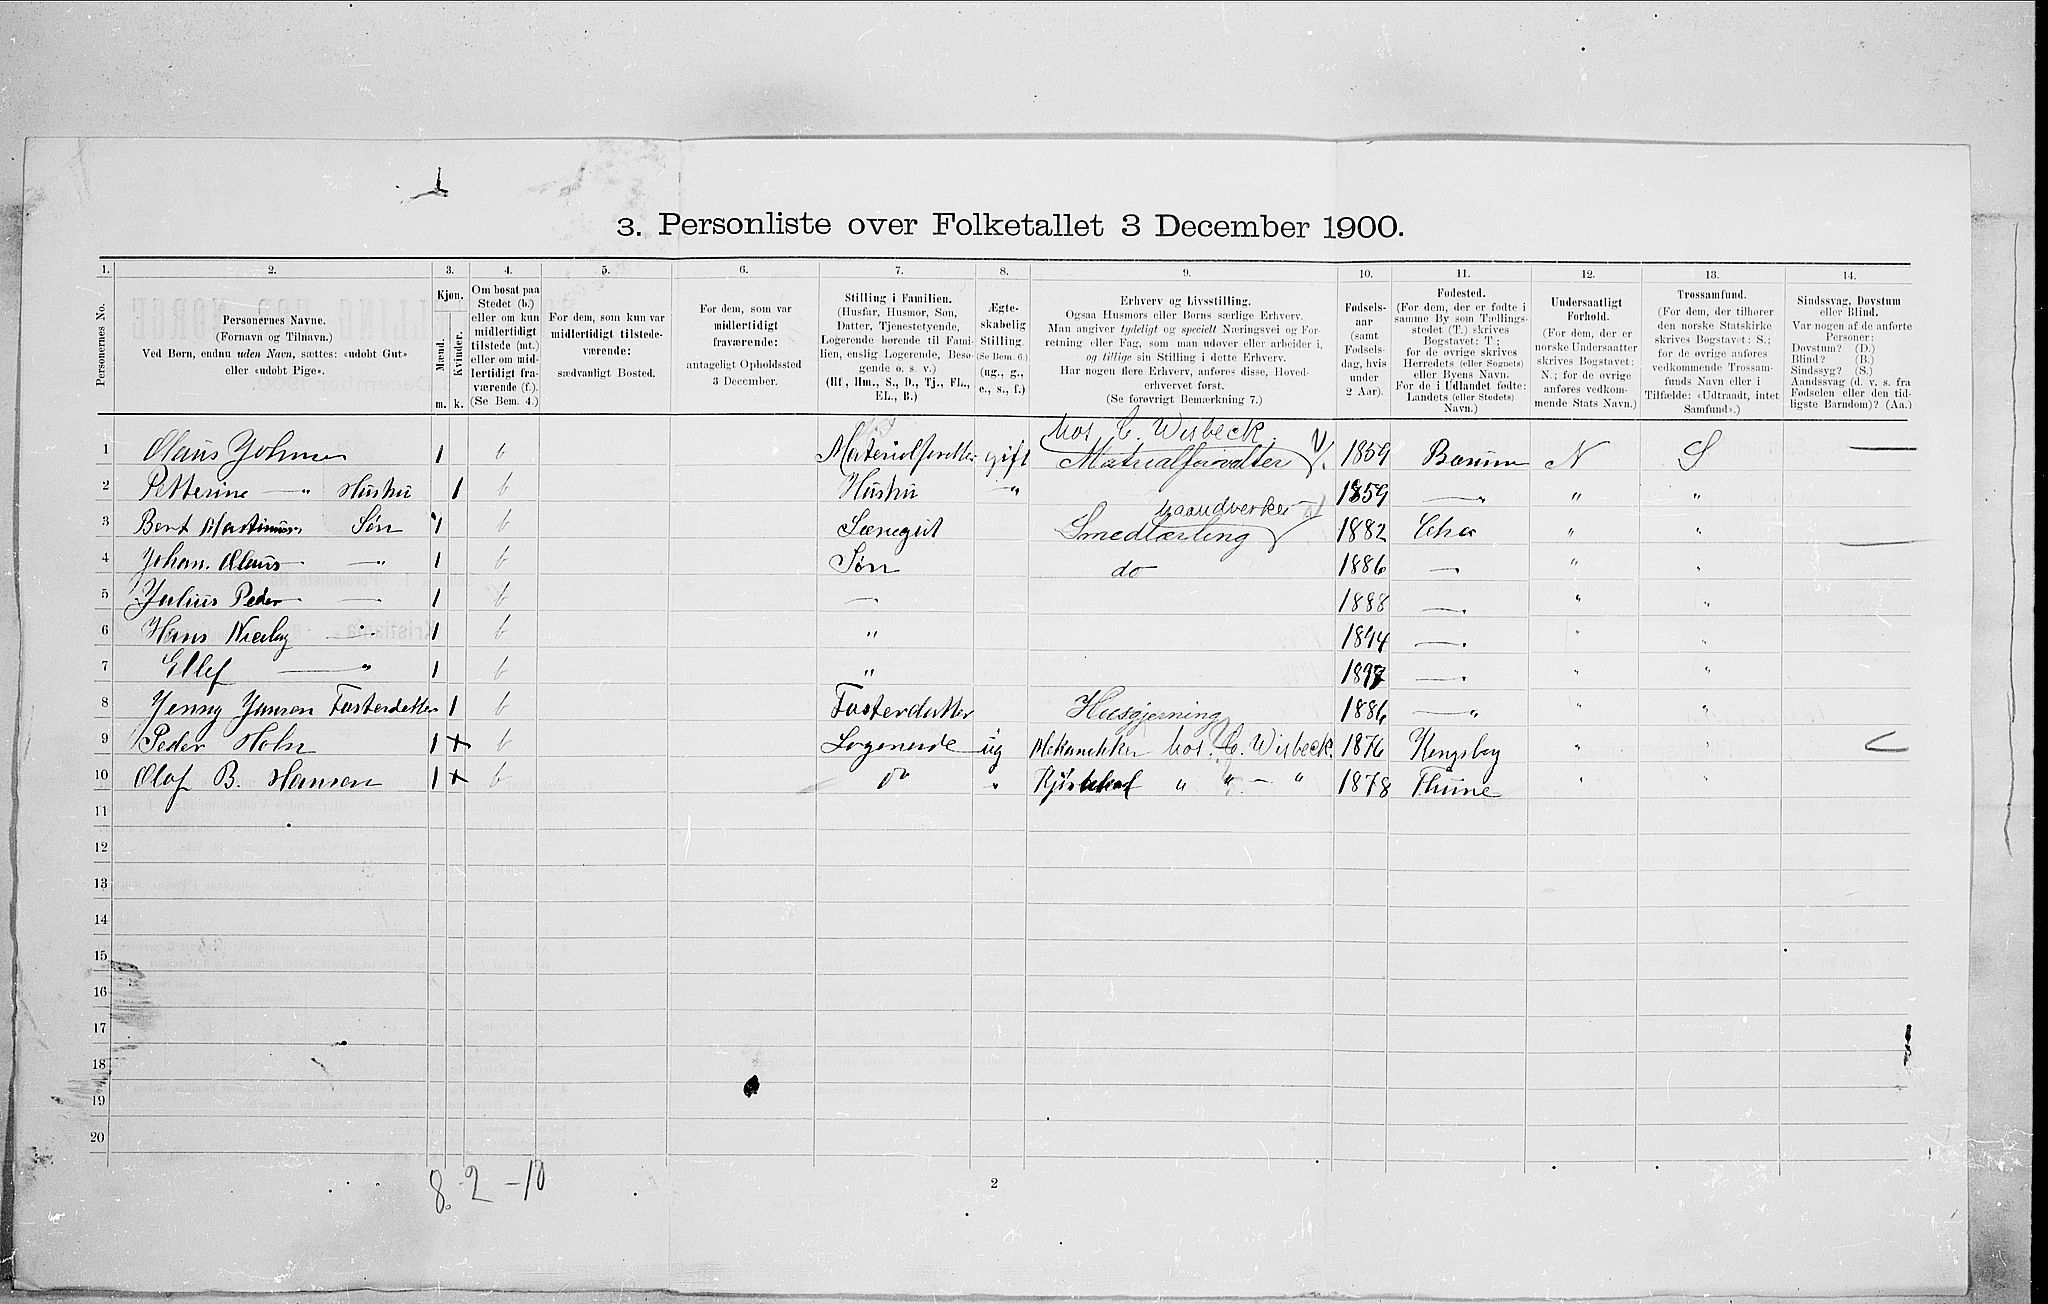 3. Personliste over Folketallet 3 December 1900.
1. 2. 3. 4. 5. 6. 7. 8. 9. 10. 11. 12. 13. 14.
Personernes No.
Personernes Navne.
(Fornavn og Tilnavn.)
Ved Børn, endnu uden Navn, sættes: «udøbt Gut»
eller «udøbt Pige».
Kjøn.
Mænd.
Kvinder.
m. k.
Om bosat paa
Stedet (b.)
eller om kun
midlertidigt
tilstede (mt.)
eller om mid-
lertidigt fra-
værende (f.).
(Se Bem. 4.)
For dem, som kun var
midlertidigt tilstede-
værende:
sædvanligt Bosted.
For dem, som var
midlertidigt
fraværende:
antageligt Opholdssted
3 December.
Stilling i Familien.
(Husfar, Husmor, Søn,
Datter, Tjenestetyende,
Logerende hørende til Fami-
lien, enslig Logerende, Besø-
gende o. s. v.)
(Hf., Hm., S., D., Tj., FL.,
EL., B.)
Ægte-
skabelig
Stilling.
(Se Bem. 6.)
(ug., g.,
e., s., f.)
Erhverv og Livsstilling.
Ogsaa Husmors eller Børns særlige Erhverv.
Man angiver tydeligt og specielt Næringsvei og For-
retning eller Fag, som man udøver eller arbeider i,
og tillige sin Stilling i dette Erhverv.
Har nogen flere Erhverv, anføres disse, Hoved-
erhvervet først.
(Se forøvrigt Bemærkning 7.)
Fødsels-
aar
(samt
Fødsels-
dag, hvis
under
2 Aar).
Fødested.
(For dem, der er fødte i
samme By som Tællings-
stedet (T.) skrives
Bogstavet: T.;
for de øvrige skrives
Herredets (eller Sognets)
eller Byens Navn.
For de i Udlandet fødte:
Landets (eller Stedets)
Navn.)
Undersaatligt
Forhold.
(For dem, der er
norske Undersaatter
skrives Bogstavet:
N.; for de øvrige
anføres vedkom-
mende Stats Navn.)
Trossamfund.
(For dem, der tilhører
den norske Statskirke
skrives Bogstavet: S.;
for de øvrige anføres
vedkommende Trossam-
funds Navn eller i
Tilfælde: «Udtraadt, intet
Samfund».)
Sindssvag, Døvstum
eller Blind.
Var nogen af de anførte
Personer:
Døvstum? (D.)
Blind? (B.)
Sindssyg? (S.)
Aandssvag (d. v. s. fra
Fødselen eller den tid-
ligste Barndom)? (Aa.)
hos C. Wisbeck.
1 Olaus 1 b gift Matrialforvalter 1859 Bærum N S —
2 Petterine — " Hustru 1 b Hustru — " 1859 — " " "
haandverker
3 Bert Martinus Søn 1 b Smedlærling 1882 Chra " " —
4 Johan Olaus — " 1 b Søn do 1886 — " " "
5 Julius Peder — 1 b — 1888 — " " "
6 Hans — " 1 b " — " " "
7 Ellef — " 1 b " — " " "
8 Jenny Jansen Fosterdatter 1 b Fosterdatter Husgjerning 1886 — " " "
9 Peder Holm 1 + b Logerende ug Mekanikker hos C. Wisbeck. 1876 Kongsberg " "
10 Olaf B. Hansen 1 + b do " " " — " 1878 " "
11
12
13
14
15
16
17
18
19
20
8. 2 - 10
2